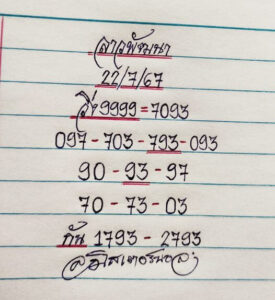 ลาวพัฒนา
22/7/67
วิ่ง 9999 = 7093
097 - 703 - 793 - 093
90 - 93 - 97
70 - 73 - 03
กัน 1793 - 2793